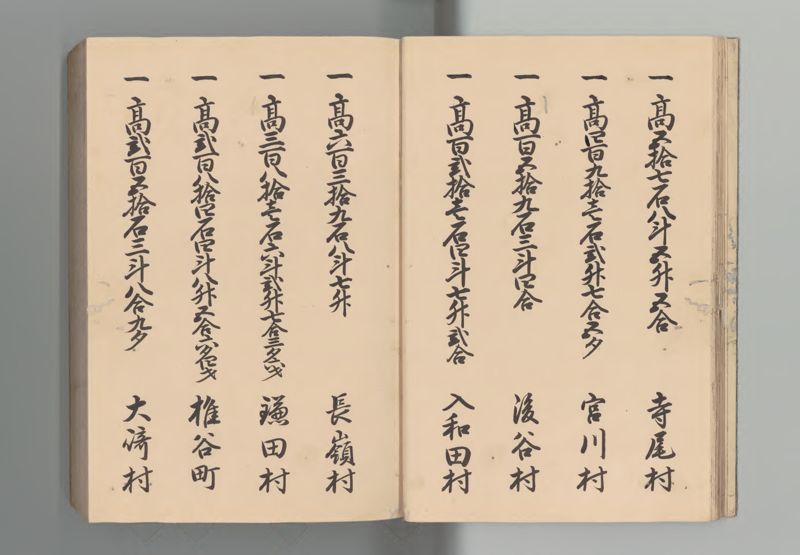 一高五拾七石八斗五升五合 寺尾村
一高四百九拾壱石弐升七合五夕 宮川村
一高百五拾九石三斗四合 後谷村
一高百弐拾壱石四斗七升弐合 入和田村
一高六百三拾九石八斗七升 長嶺村
一高三百八拾壱石六斗弐升七合三夕八才 鎌田村
一高弐百八拾四石四斗八升五合六夕七才 椎谷町
一高弐百五拾石三斗八合九夕 大津村